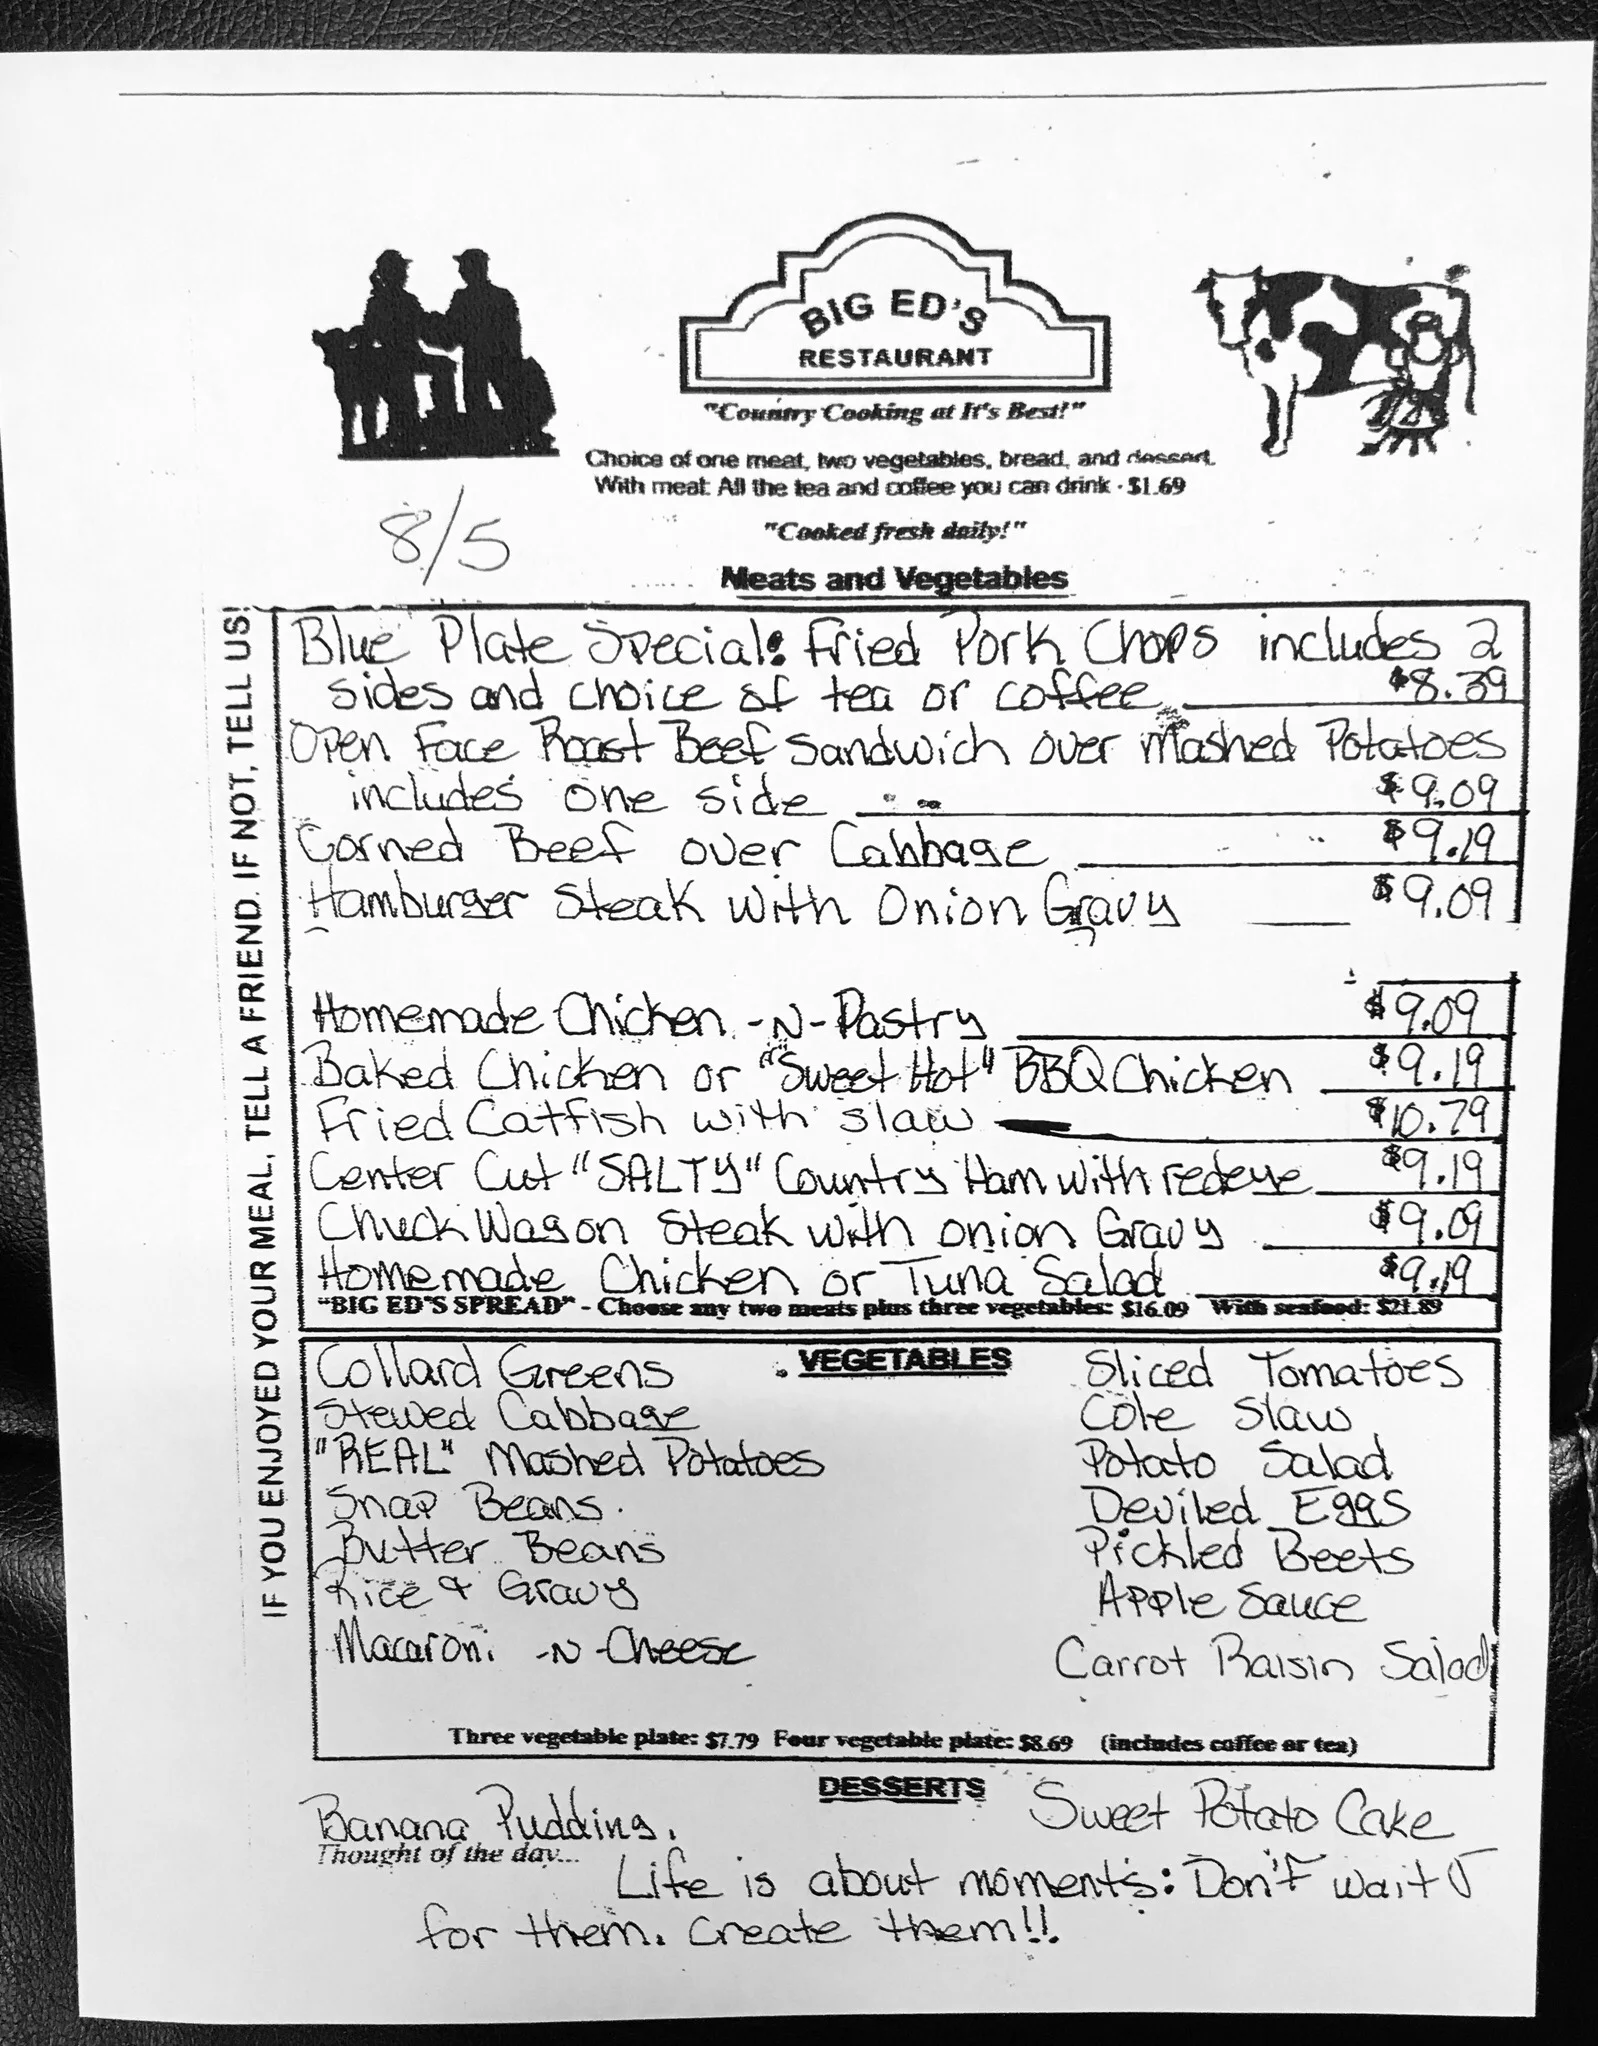 BIG ED'S
RESTAURANT
"Country Cooking at It's Best!"
Choice of one meat, two vegetables, bread, and dessert.
With meal: All the tea and coffee you can drink - $1.69
8/5
"Cooked fresh daily!"
Meats and Vegetables
IF YOU ENJOYED YOUR MEAL, TELL A FRIEND. IF NOT, TELL US!
Blue Plate Special: Fried Pork Chops includes 2
sides and choice of tea or coffee $8.39
Open Face Roast Beef Sandwich over Mashed Potatoes
includes one side $9.09
Corned Beef over Cabbage $9.19
Hamburger Steak with Onion Gravy $9.09
Homemade Chicken -N- Pastry $9.09
Baked Chicken or "Sweet Hot" BBQ Chicken $9.19
Fried Catfish with slaw $10.79
Center Cut "SALTY" Country Ham with redeye $9.19
Chuck Wagon Steak with onion Gravy $9.09
Homemade Chicken or Tuna Salad $9.19
"BIG ED'S SPREAD" - Choose any two meats plus three vegetables: $16.09 With seafood: $21.89
VEGETABLES
Collard Greens
Stewed Cabbage
"REAL" Mashed Potatoes
Snap Beans.
Butter Beans
Rice & Gravy
Macaroni -N- Cheese
Sliced Tomatoes
Cole Slaw
Potato Salad
Deviled Eggs
Pickled Beets
Apple Sauce
Carrot Raisin Salad
Three vegetable plate: $7.79 Four vegetable plate: $8.69 (includes coffee or tea)
DESSERTS
Banana Pudding.
Sweet Potato Cake
Thought of the day...
Life is about moments: Don't wait
for them. Create them!!